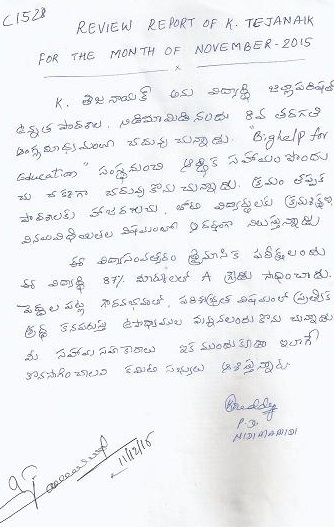 C1528
REVIEW REPORT OF K. TEJANAIK
FOR THE MONTH OF NOVEMBER-2015
x
K. తేజనాయక్ అను విద్యార్థి జిల్లాపరిషత్
ఉన్నత పాఠశాల, నిడిమామిడి నందు 8వ తరగతి
ఆంగ్లమాధ్యమంలో చదువుచున్నాడు. "Bighelp for
Education" సంస్థనుంచి ఆర్థిక సహాయం పొందు
చు చక్కగా చదువుకొనుచున్నాడు. క్రమం తప్పక
పాఠశాలకు హాజరగుచు, తోటి విద్యార్థులకు క్రమశిక్షణ,
వినయవిధేయతల విషయంలో ఆదర్శంగా నిలుస్తున్నాడు
ఈ విద్యాసంవత్సరం త్రైమాసిక పరీక్షలందు
ఈ విద్యార్థి 87% మార్కులతో A గ్రేడు సాధించాడు.
పెద్దల పట్ల గౌరవభావంతో, పరిశుభ్రత విషయంలో ప్రత్యేక
శ్రద్ధ కనపరుస్తూ ఉపాధ్యాయుల మన్ననలందుకొనుచున్నాడు
మీ సహాయ సహకారాలు ఇక ముందుకూడా ఇలాగే
కొనసాగించాలని కమిటి సభ్యులు ఆశిస్తున్నారు
Breddy
P.D
NIDIMAMIDI
11/12/15